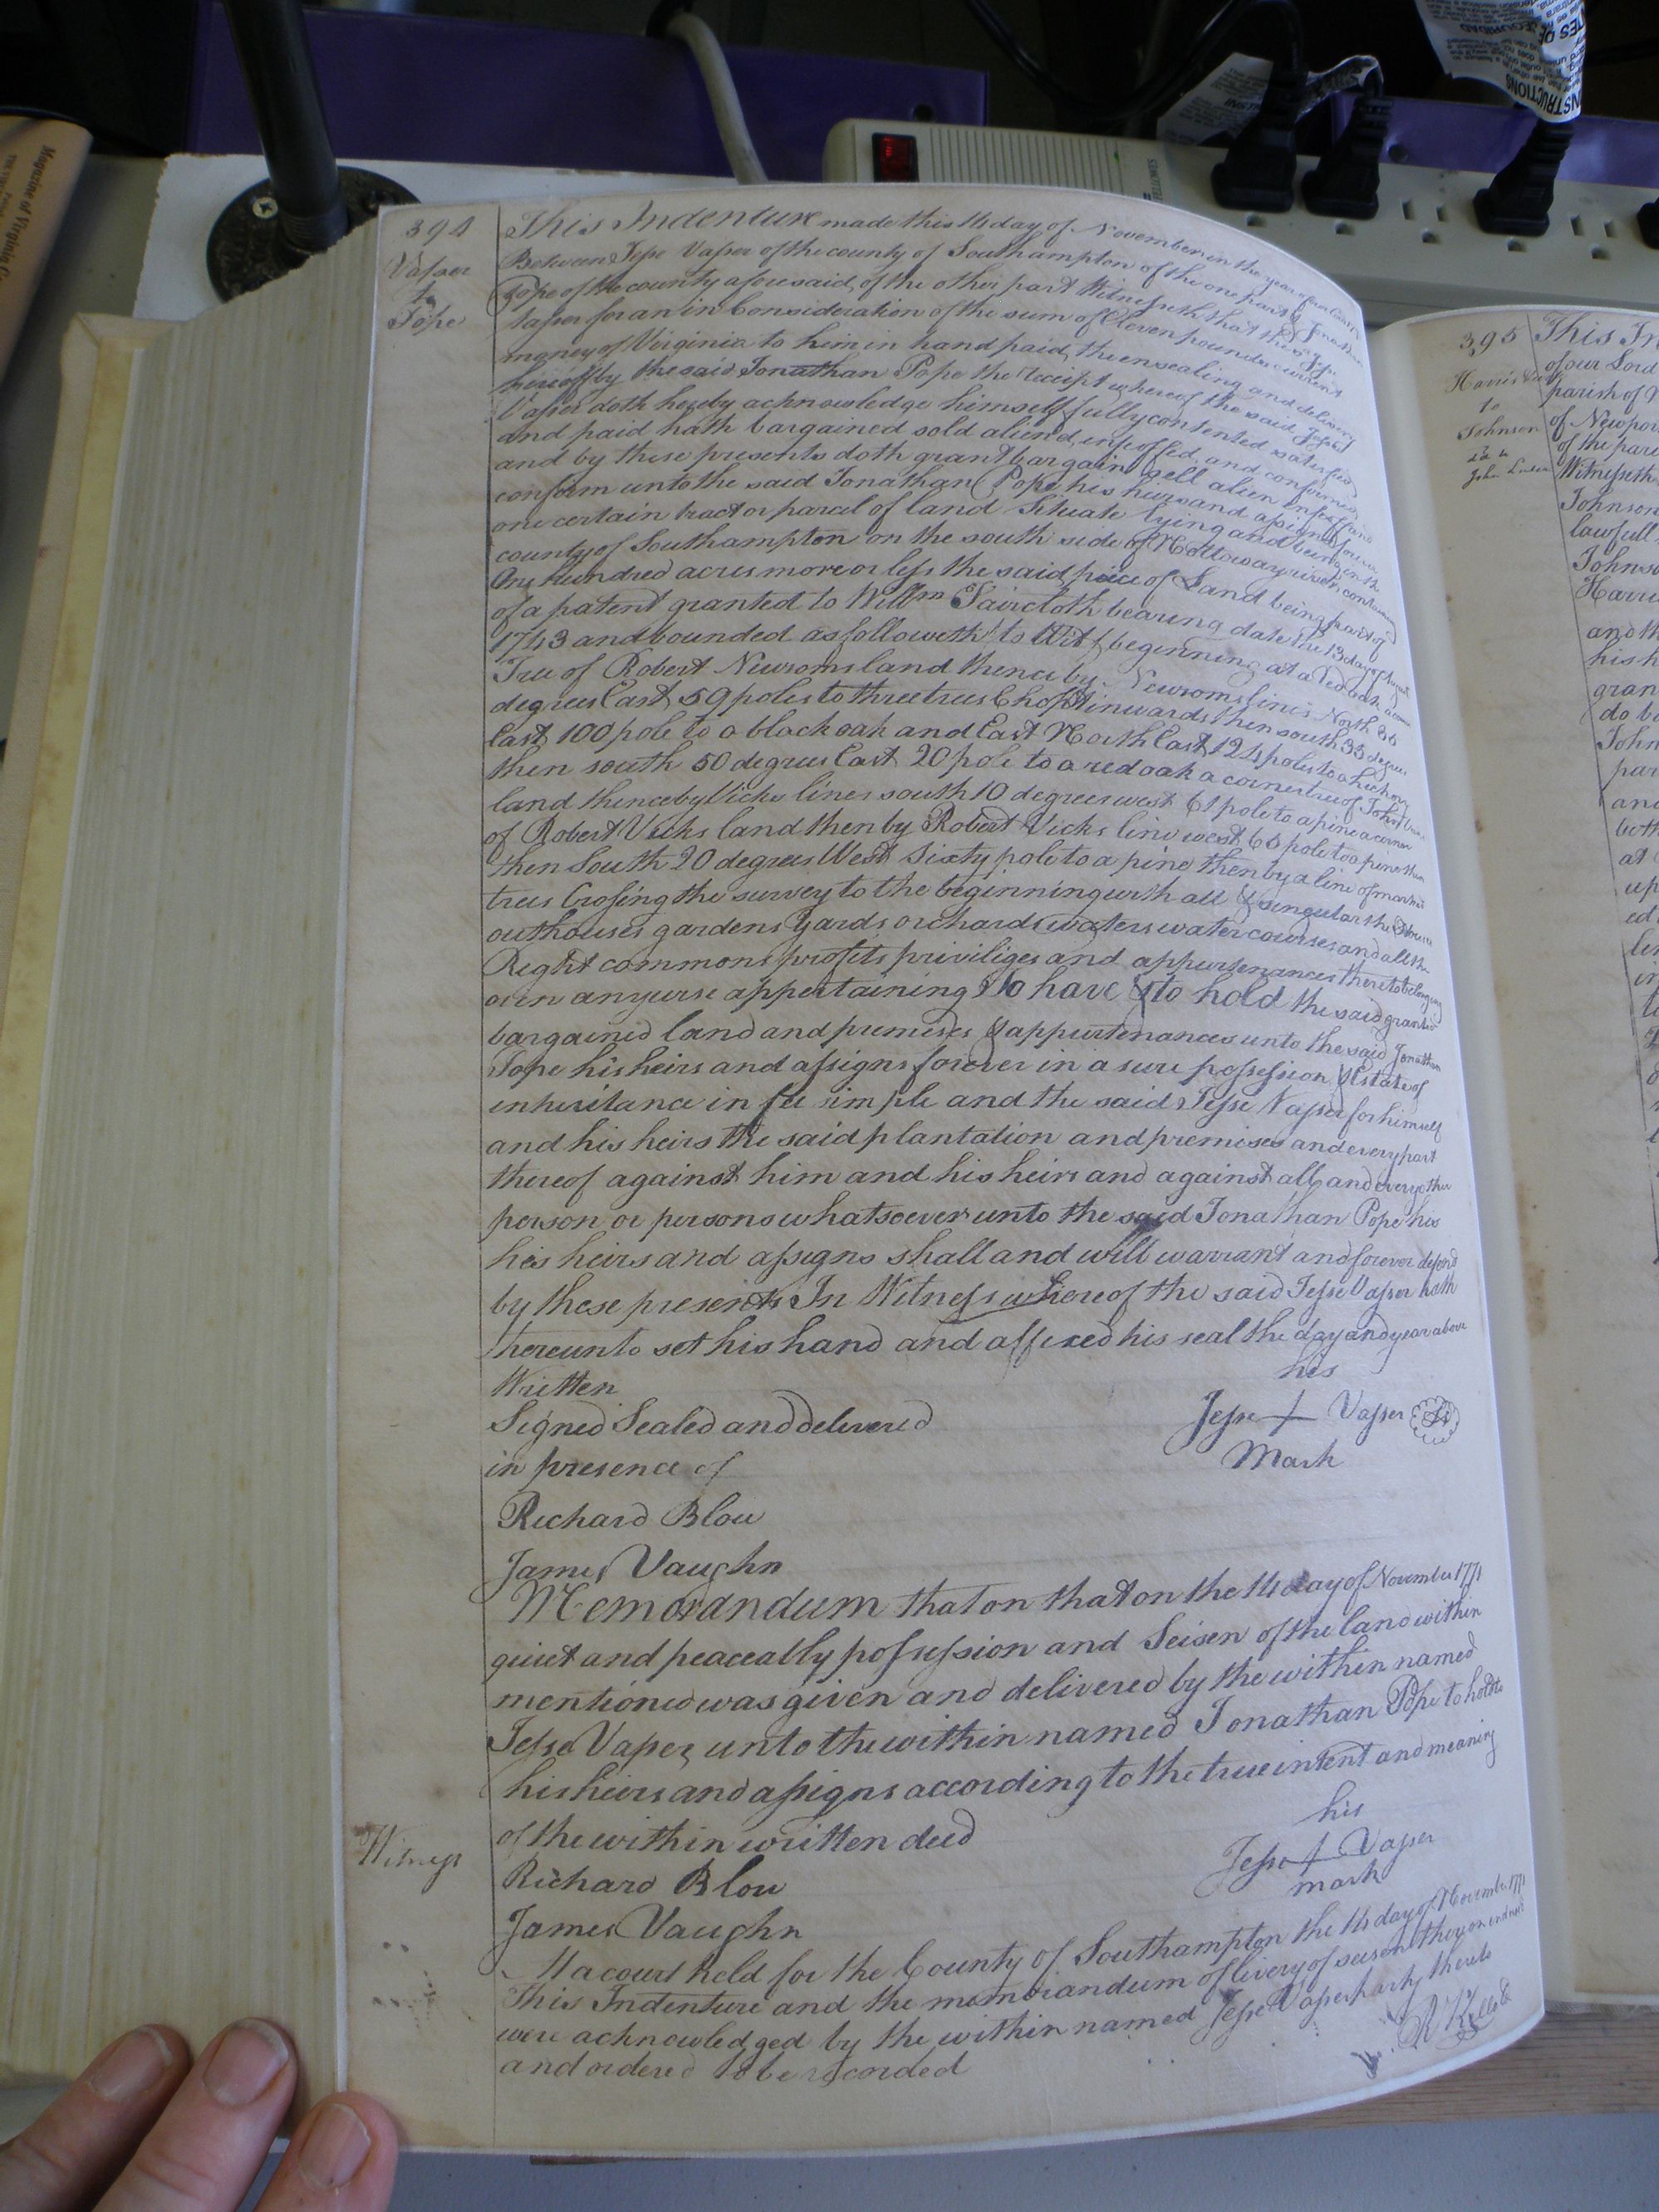 394
Vasser
to
Pope
This Indenture made this 14 day of November in the year of our
Between Jesse Vasser of the county of Southampton of the one part & Jonathan
Pope of the county aforesaid, of the other part Witnesseth that the said Jesse
Vasser for an in Consideration of the sum of Eleven pounds current
money of Virginia to him in hand paid, the ensealing and delivery
hereoff by the said Jonathan Pope the receipt whereof the said Jesse
Vasser doth hereby acknowledge himself fully contented satisfied
and paid hath bargained sold aliend, infeoffed, and confirmed
and by these presents doth grant bargain sell alien Infeoff and
confirm unto the said Jonathan Pope his heirs and assigns forever
one certain tract or parcel of land Situate lying and being in the
county of Southampton on the south side of Nottoway river, containing
One Hundred acres more or less the said piece of Land being part of
of a patent granted to Willm Faircloth bearing date the 13 day of August
1743 and bounded as followeth to Wit, beginning at a red oak a corner
Tree of Robert Newsoms land thence by Newsoms lines North 36
degrees East, 59 poles to three trees Chopt inwards then south 33 degrees
East 100 pole to a black oak and East North East 124 poles to a hickory
then south 50 degrees East 20 pole to a red oak a corner tree of John
land thence by Vicks lines south 10 degrees west 61 pole to a pine a corner
of Robert Vicks land then by Robert Vicks line west 66 pole to a pine then
then South 20 degrees West Sixty pole to a pine, then by a line of marked
trees Crossing the survey to the beginning with all & singular the
outhouses gardens Yards orchards waters water courses and all the
Right commons profits priviliges and appurtenances thereto belonging
or in anywise appertaining To have & to hold the said granted
bargained land and premises & appurtenances unto the said Jonathan
Pope his heirs and assigns forever in a sure possession & Estate of
inheritance in fee simple and the said Jesse Vasser for himself
and his heirs the said plantation and premises and every part
thereof against him and his heirs and against all and every other
person or persons whatsoever unto the said Jonathan Pope his
his heirs and assigns shall and will warrant and forever defend
by these presents In Witness whereof the said Jesse Vasser hath
hereunto set his hand and affixed his seal the day and year above
Written
his
Signed Sealed and delivered
Jesse + Vasser
in presence of
Mark
Richard Blow
James Vaughn
Memorandum that on that on the 14 day of November 1771
quiet and peaceally possession and Seisen of the land within
mentioned was given and delivered by the within named
Jesse Vasser, unto the within named Jonathan Pope to hold to
his heirs and assigns according to the true intent and meaning
of the within written deed
his
Witness
Richard Blow
Jesse + Vasser
mark
James Vaughn
At a court held for the County of Southampton the 14 day of November 1771
This Indenture and the memorandum of livery of seisen thereon endorsed
were acknowledged by the within named Jesse Vasser party thereto
and ordered to be recorded
395
Harris
to
Johnson
This In
of our Lord
parish of N
of Newpor
of the pari
Witnesseth
Johnson
lawfull
Johnso
Harri
and th
his h
gran
do b
John
par
and
both
at
up
ed
Magazine of Virginia
FELLOWES
INSTRUCTIONS